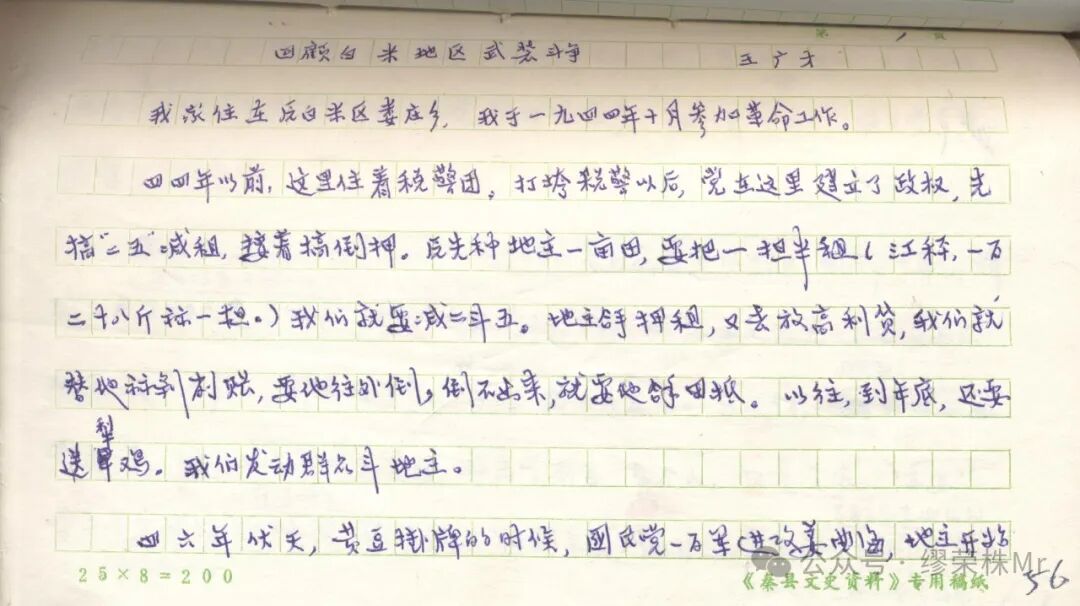 第 1 页
回顾白米地区武装斗争 王广才
我家住在后白米区娄庄乡，我于一九四四年十月参加革命工作。
四四年以前，这里住着税警团。打垮税警以后，党在这里建立了政权，先
搞“二五”减租，接着搞倒押。后先种地主一亩田，要把一担半租（江秤，一百
二十八斤称一担。）我们就要减二斗五。地主拿押租，又去放高利贷，我们就
替他称剥削账，要他往外倒，倒不出来，就要他拿田抵。以往，到年底，还要
送犁鸡。我们发动群众斗地主。
四六年伏天，黄豆掛牌的时候，國民党一百军进攻姜曲海，地主开始
25×8=200
公众号·缪荣株Mr.
《秦县文史资料》专用稿纸
56